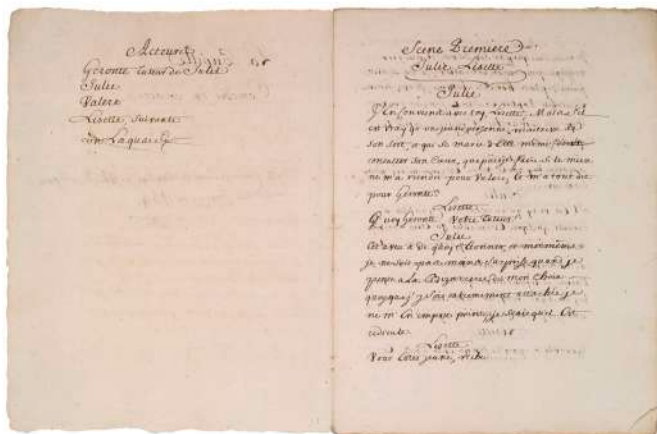 Acteurs
Geronte tuteur de Julie
Julie
Valere
Lisette, Suivante
un Laquais
Scene Premiere
Julie Lisette
Julie
J'en conviens avec toy, Lisette; Mais s'il
est vray qu'une jeune personne, maitresse de
son sort, et qui se marie d'Elle même, doive
consulter son Coeur, que puis-je faire si le mien
ne m'a rien dit pour Valere, et m'a tout dit
pour Geronte?
Lisette
Quoy Geronte Votre tuteur
Julie
Cet aveu a de quoy t'étonner, et moi même
je ne suis pas moins surprise quand je
pense a La Bizarrerie de mon Choix
quoyque j'y sois
je
ne m'en
point, je
qu'il Est
ridicule.
Lisette
Vous Estes jeune, riche